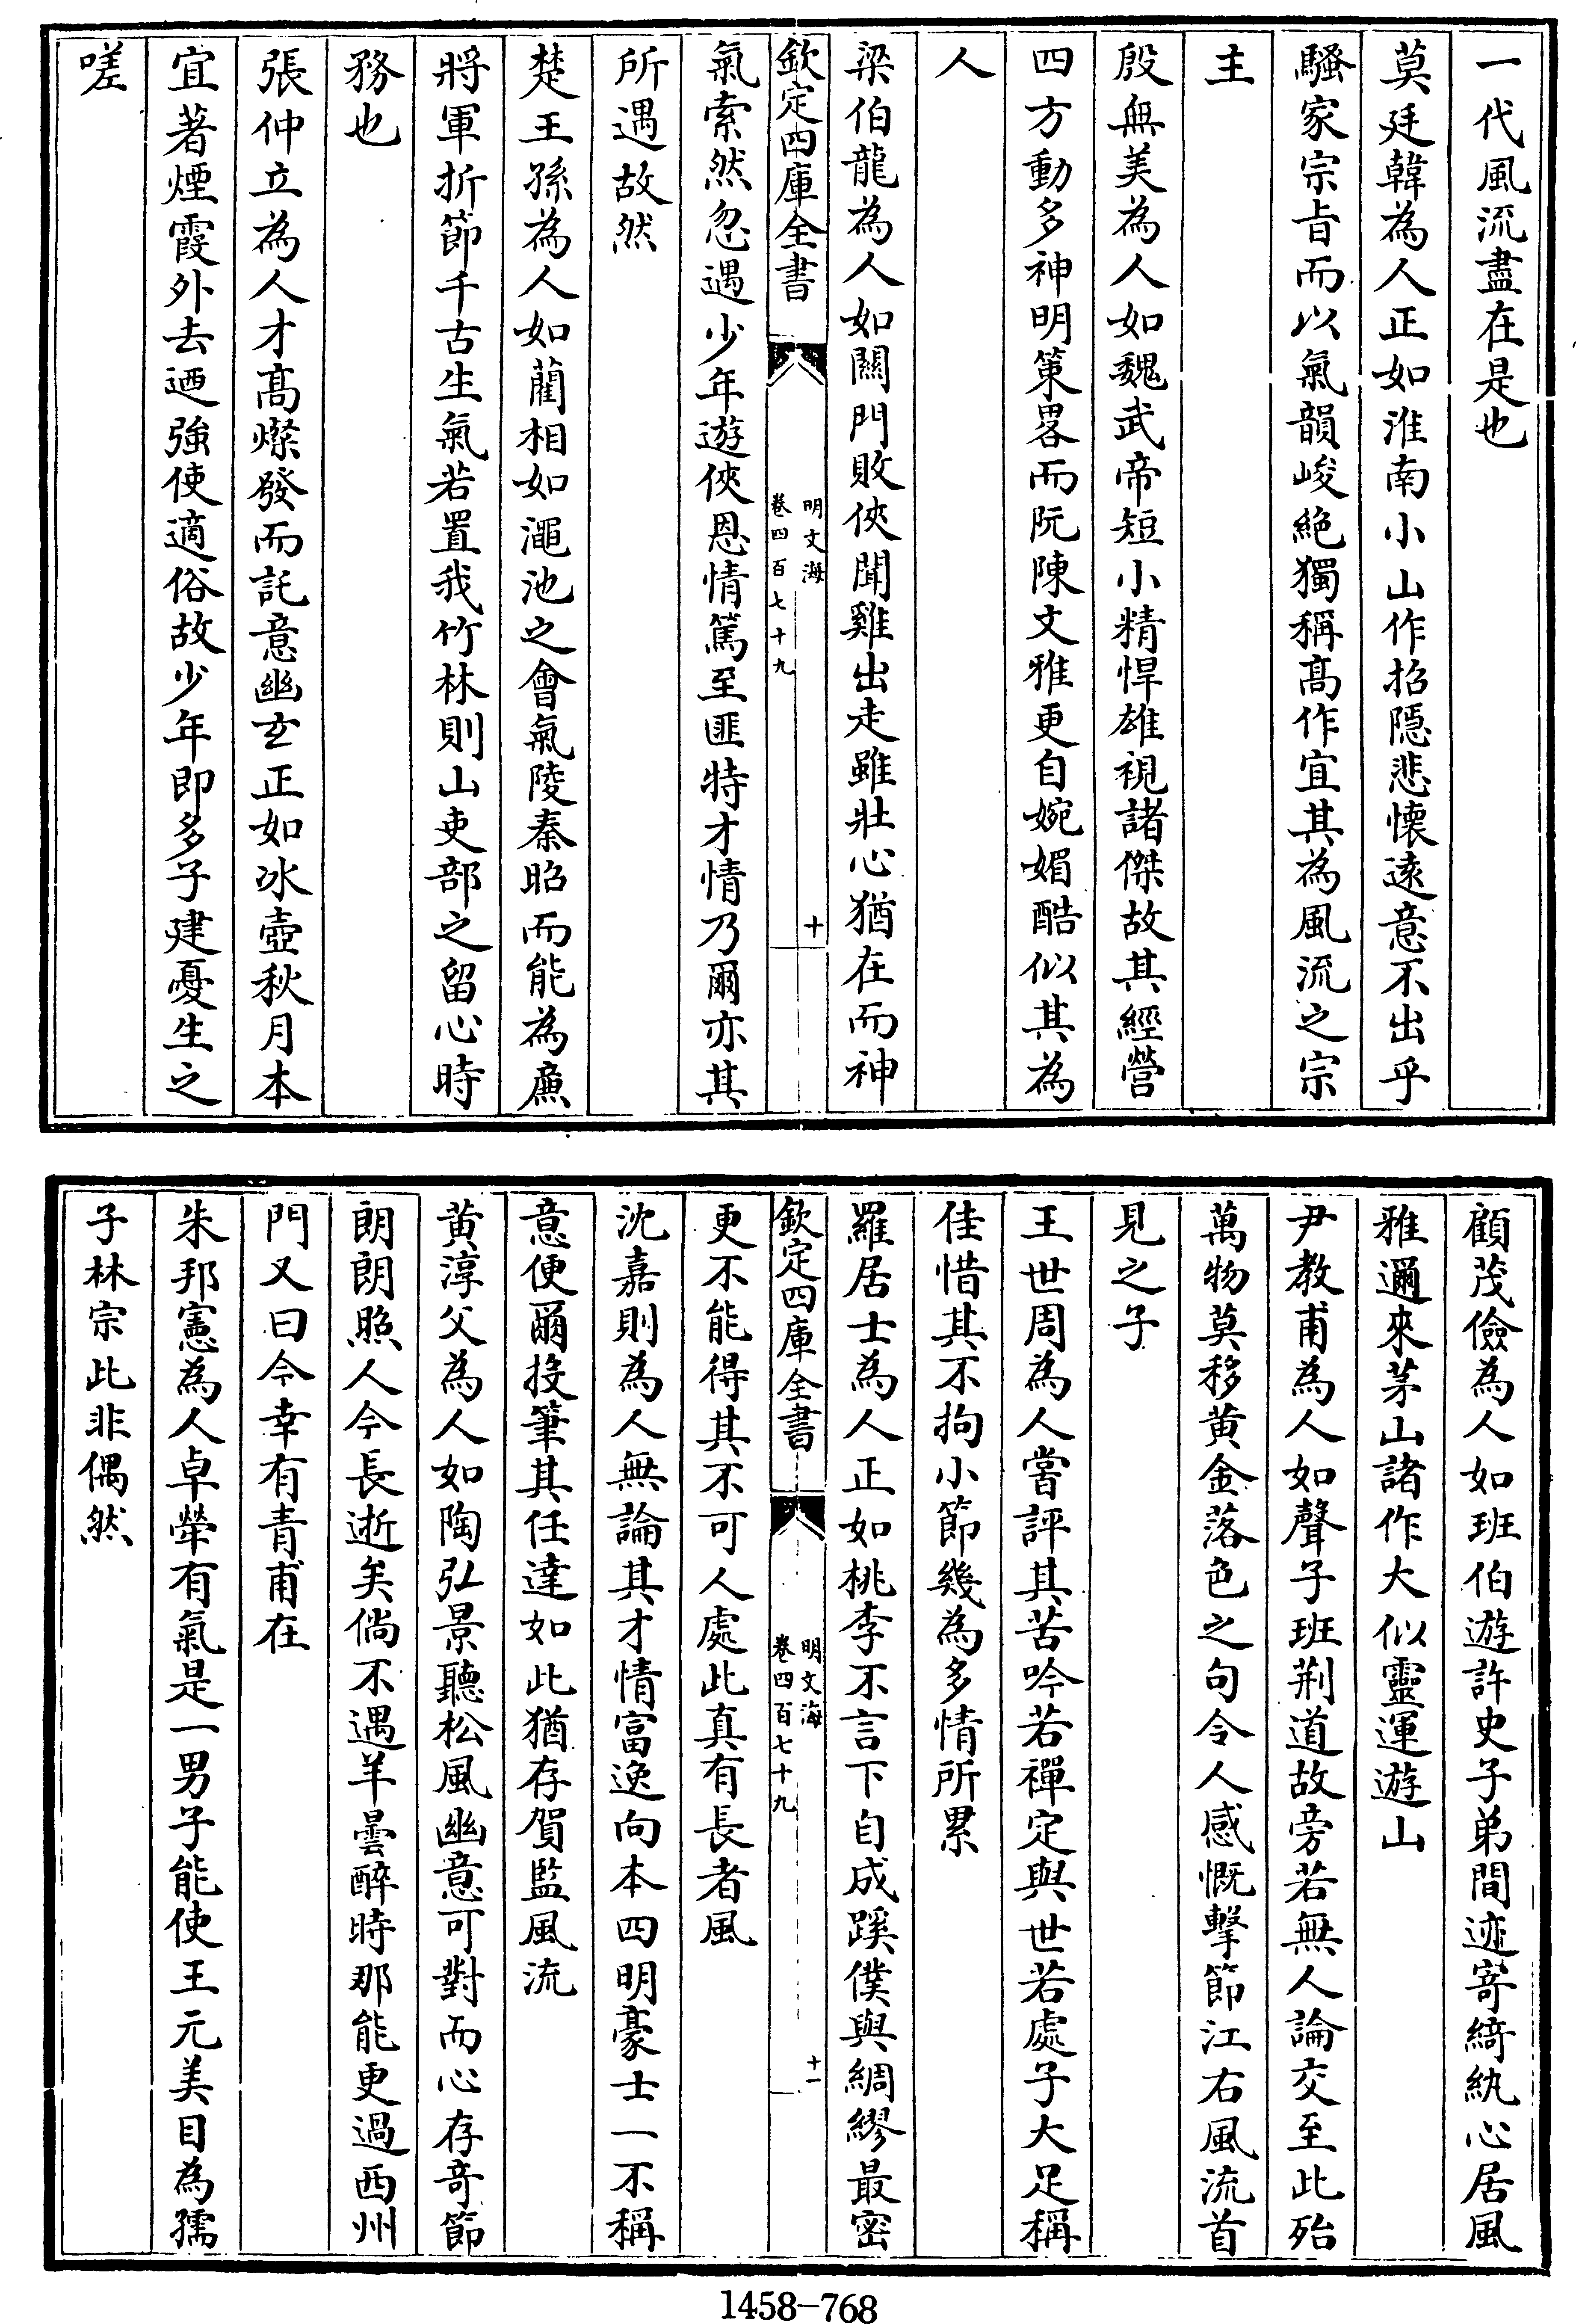 一代風流盡在是也
莫廷韓為人正如淮南小山作招隱悲懷遠意不出乎
騷家宗旨而以氣韻峻絶獨稱髙作宜其為風流之宗
主
殷無美為人如魏武帝短小精悍雄視諸傑故其經營
四方動多神明策畧而阮陳文雅更自婉媚酷似其為
人
梁伯龍為人如關門敗俠聞雞出走雖壯心猶在而神
欽定四庫全書
明文海
卷四百七十九
十
氣索然忽遇少年遊俠恩情篤至匪特才情乃爾亦其
所遇故然
楚王孫為人如藺相如澠池之會氣陵秦昭而能為㢘
將軍折節千古生氣若置我竹林則山吏部之留心時
務也
張仲立為人才髙燦發而託意幽玄正如冰壺秋月本
宜著煙霞外去迺強使適俗故少年即多子建憂生之
嗟
顧茂儉為人如班伯遊許史子弟間迹寄綺紈心居風
雅邇來茅山諸作大似靈運遊山
尹教甫為人如聲子班荆道故旁若無人論交至此殆
萬物莫移黄金落色之句令人感慨擊節江右風流首
見之子
王世周為人嘗評其苦吟若禪定與世若處子大足稱
佳惜其不拘小節幾為多情所累
羅居士為人正如桃李不言下自成蹊僕與綢繆最密
欽定四庫全書
明文海
卷四百七十九
十一
更不能得其不可人處此真有長者風
沈嘉則為人無論其才情富逸向本四明豪士一不稱
意便爾投筆其任達如此猶存賀監風流
黄淳父為人如陶弘景聽松風幽意可對而心存竒節
朗朗照人今長逝矣倘不遇羊曇醉時那能更過西州
門又曰今幸有青甫在
朱邦憲為人卓犖有氣是一男子能使王元美目為孺
子林宗此非偶然
1458-768